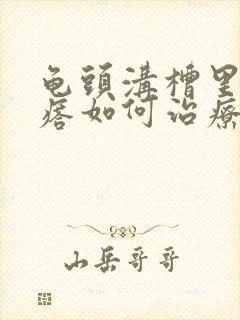 龟頭溝槽里
痞如何治療
山岳哥哥